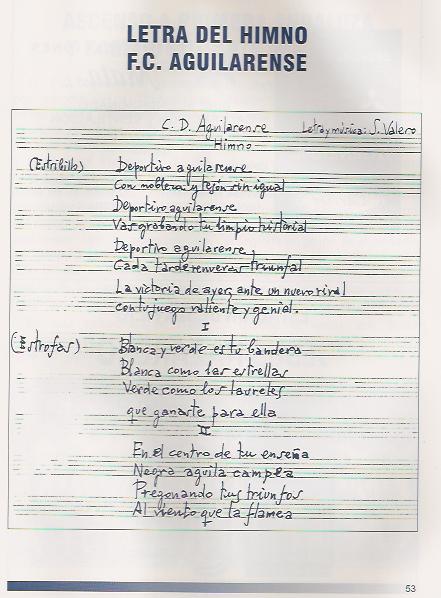 LETRA DEL HIMNO
F.C. AGUILARENSE
C. D. Aguilarense Letra y música: S. Valero
Himno
(Estribillo) Deportivo aguilarense
Con nobleza y tesón sin igual
Deportivo aguilarense
Vas grabando tu limpio historial
Deportivo aguilarense,
Cada tarde renuevas triunfal
La victoria de ayer, ante un nuevo rival
con tu juego valiente y genial.
I
(Estrofas) Blanca y verde es tu bandera
Blanca como las estrellas
Verde como los laureles
que ganaste para ella
II
En el centro de tu enseña
Negra aguila campea
Pregonando tus triunfos
Al viento que la flamea
53